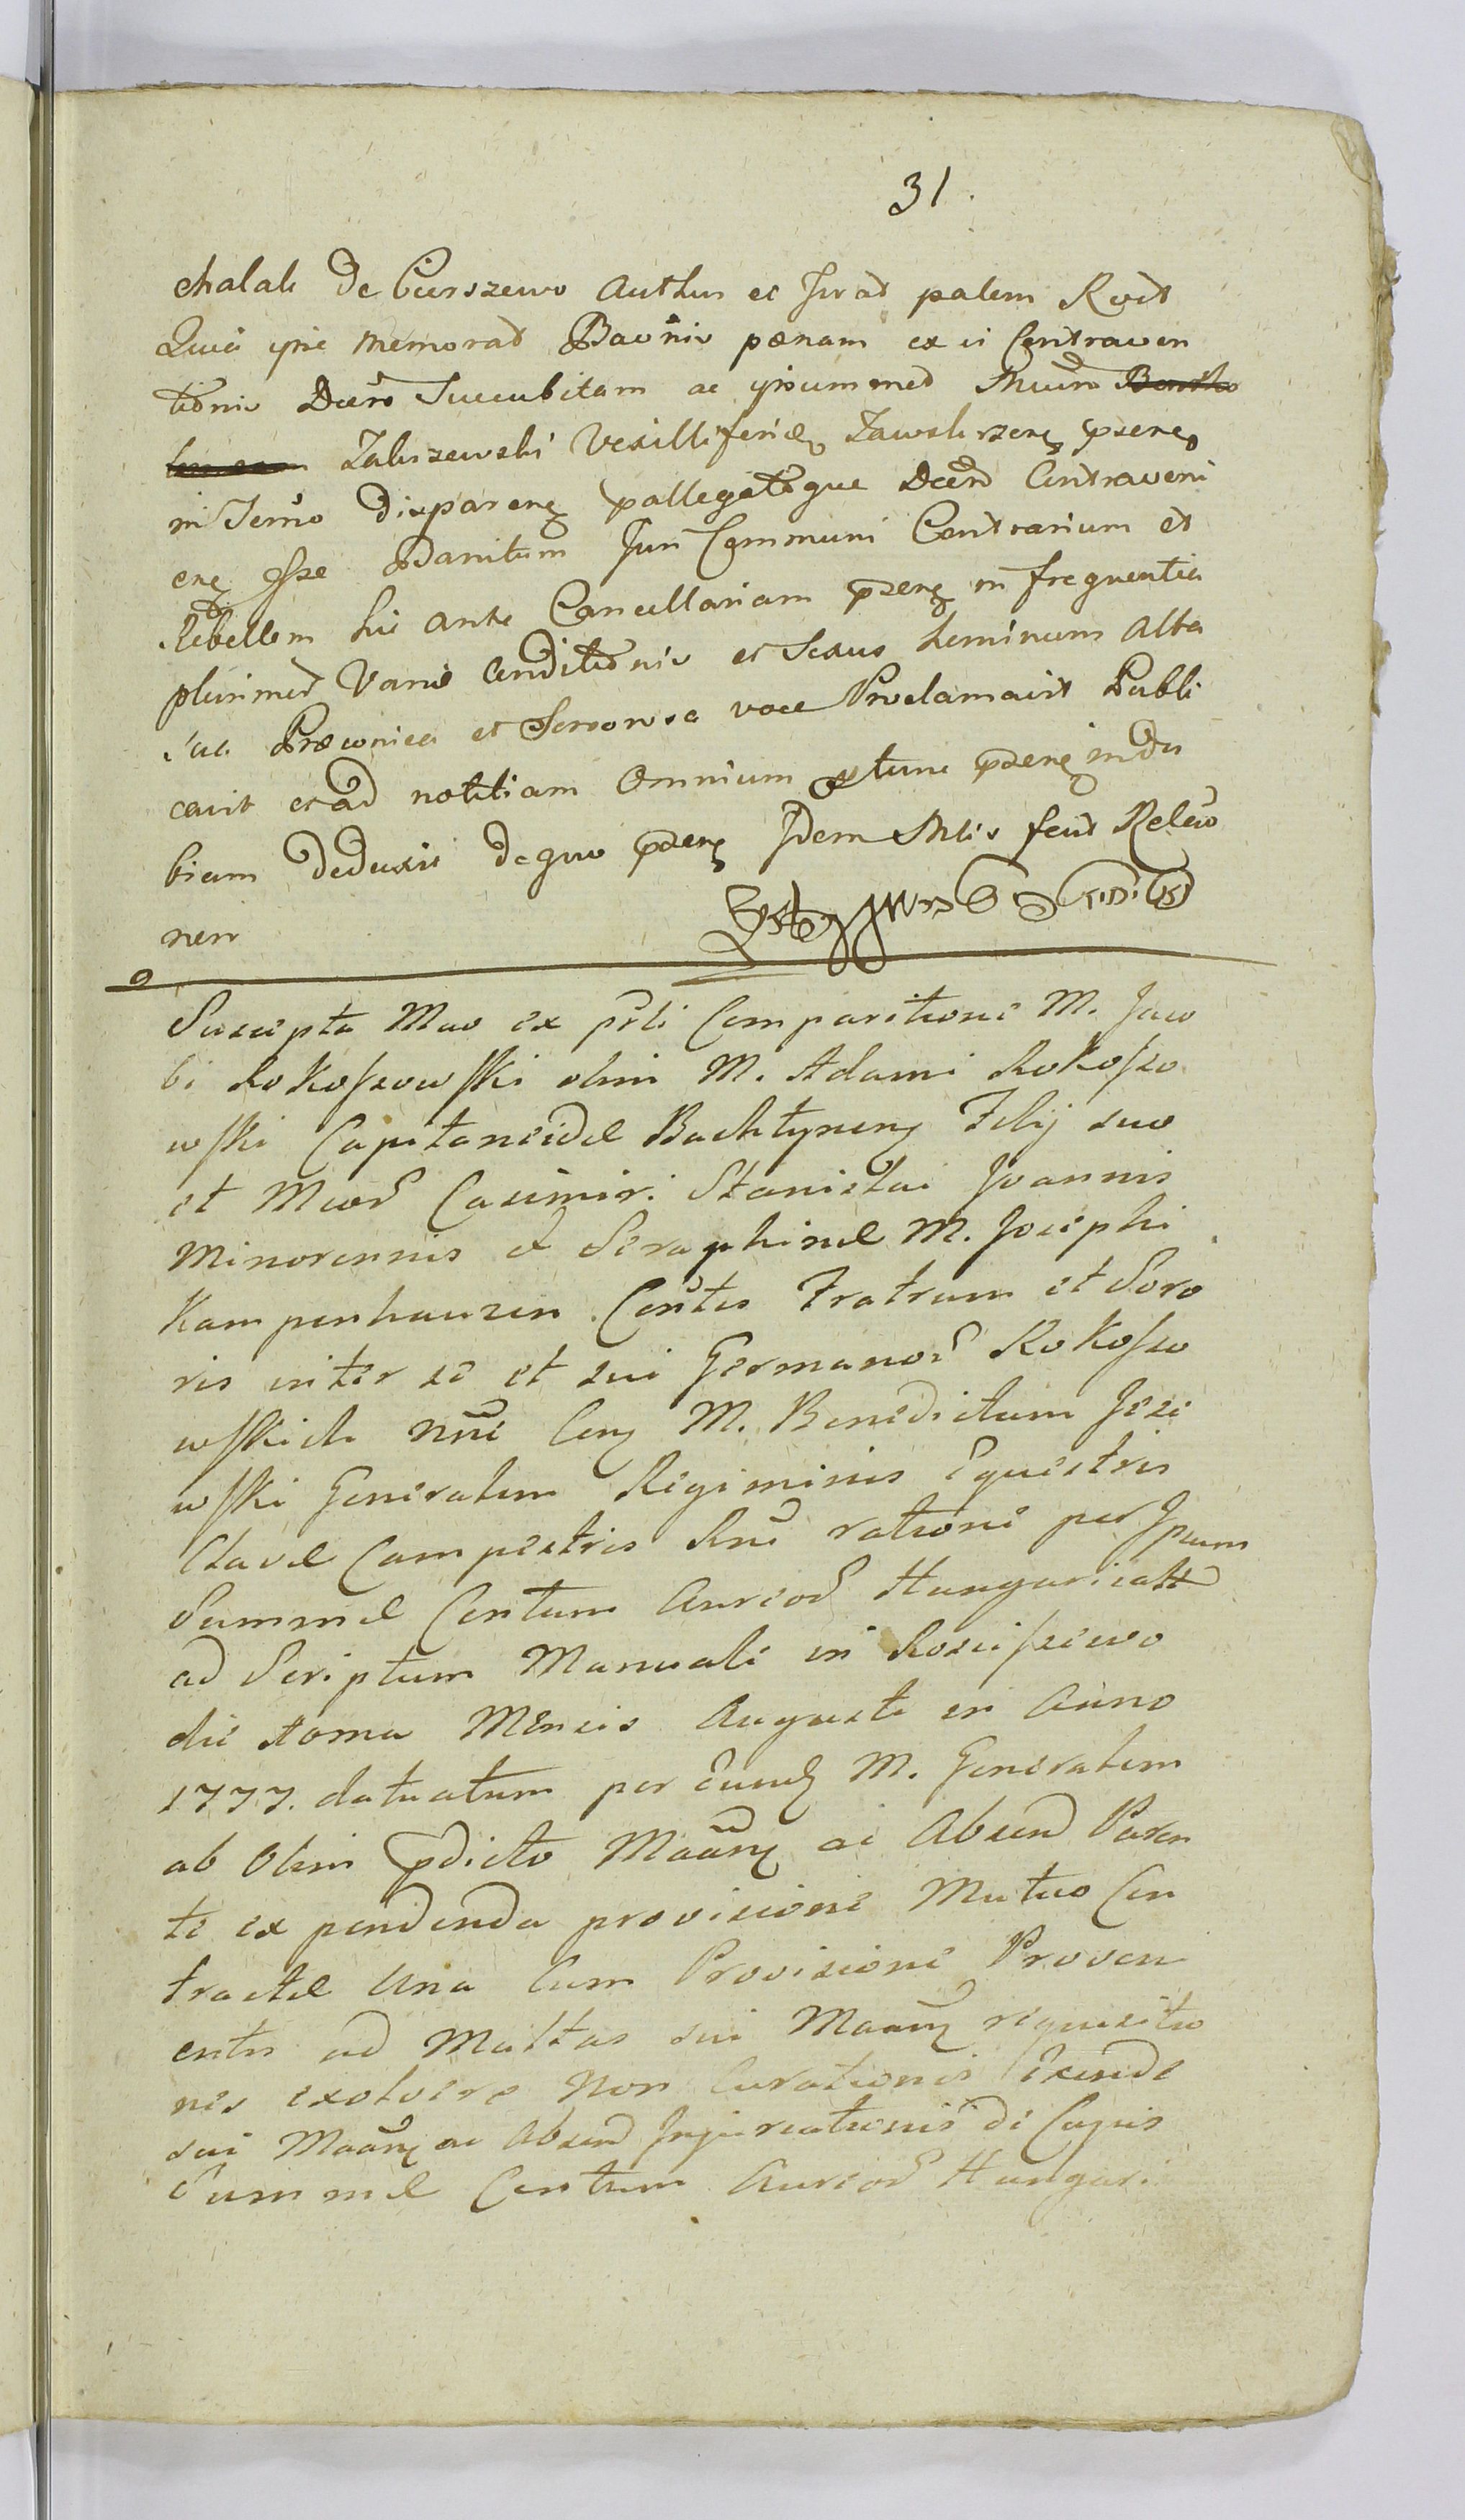 31.
chalak de Cierszewo Authen et Jurat palem Recit
Quia ipse memorat Bannis pœnam ex ii Contraven
tionis Decre Succubitam ac ipsummed Mcum
Zaliszewski Vexilliferidæ Zawskrzen psenę
in Termo disparenę pallegatoque Decreto Contraveni
enę esse Banitum Juri Communi Contrarium et
Rebellem hic ante Cancellariam psenę in frequentia
plurimor Varie Conditionis et Sexus hominum alta
sua Præconica et Sonorosa voce Proclamavit Publi
cavit et ad notitiam Omnium tunc psenę indu
biam deduxit de quo psenę Idem Mlis fecit Relatio
nem
Suscepta Mco ex psti Comparitione M. Jaco
bi Rokoszowski olim M. Adami Rokoszo
wski Capitaneidæ Bachtynenę Filij suo
et Mcor Casimiri Stanislai Joannis
Minorennis et Seraphinæ M. Josephi
Kampenhauzen Contis Fratrum et Soro
ris inter se et sui Germanor Rokoszo
wskich nne Conę M. Benedictum Jeze
wski Generalem Regiminis Equestris
Clavæ Campestris Rni ratione per Ipsum
Summæ Centum Aureor Hungarical
ad Scriptum Manuale in Rosciszewo
die 8oma Mensis Augusti in Anno
1777. datuatum per Eundę M. Generalem
ab Olim pdicto Maanę ac Absend Paren
te expendenda provisione Mutuo Con
tractæ una Cum Provisione Proveni
entis ad Multas sui Maanę requisitio
nes exolvere non Curationis Exinde
sui Maanę ac Absend Injuriationis de Cujus
Summæ Centum Aureor Hungari